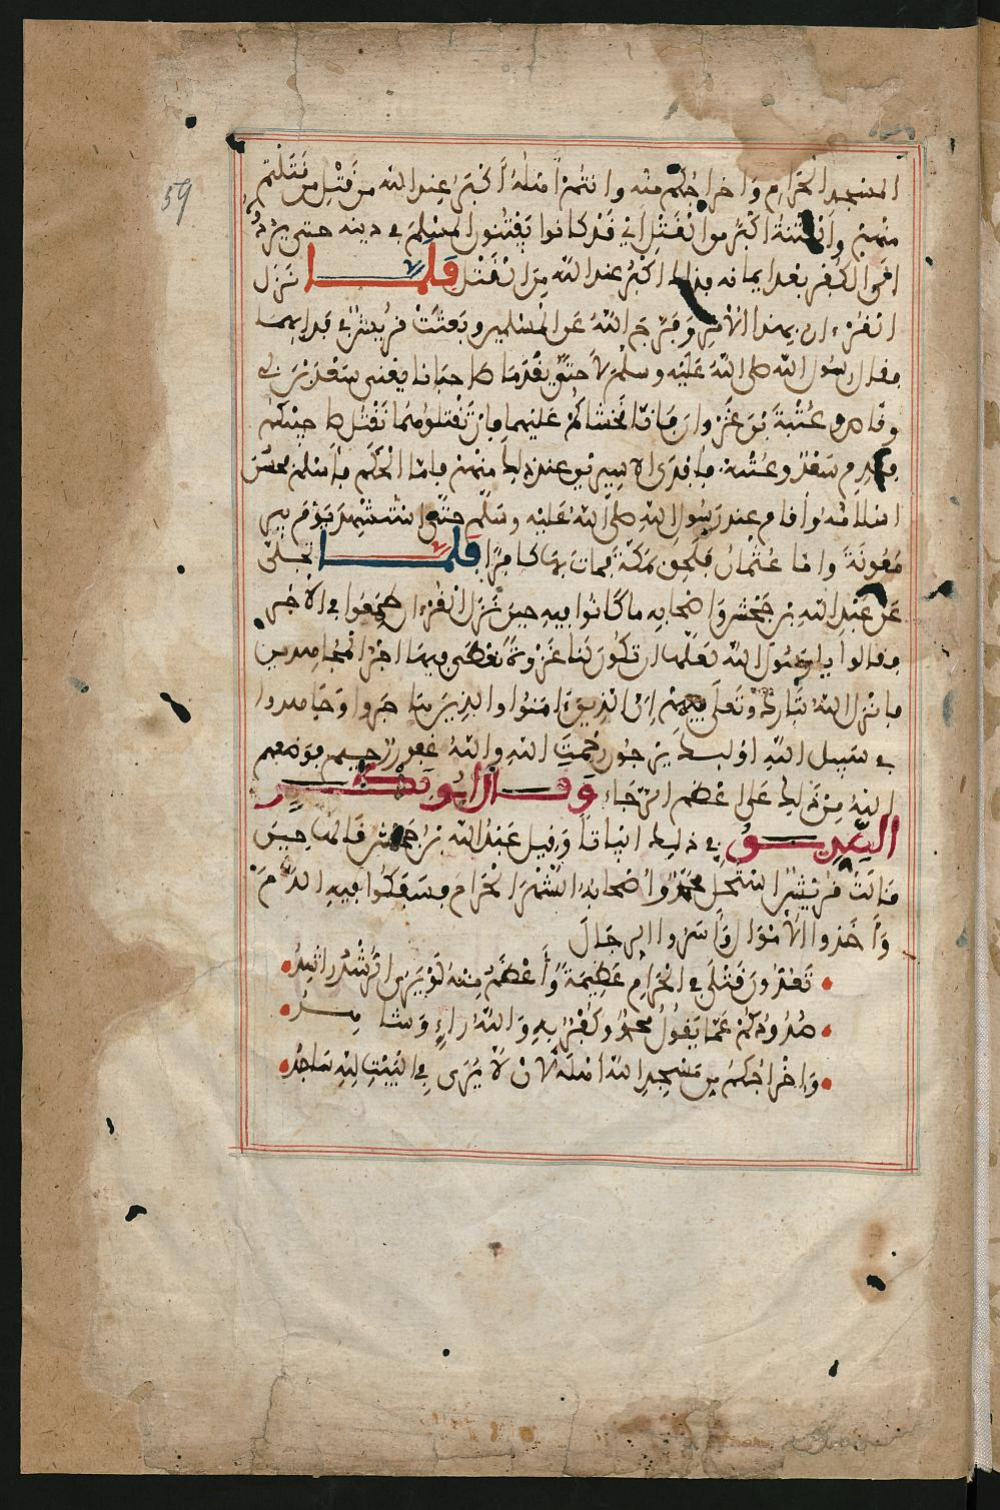 59
المسجد الحرام وإخراجكم منه وأنتم أهله أكبر عند الله من قتل من قتلتم
منهم والفتنة أكبر من القتل أي قد كانوا يفتنون المسلم في دينه حتى يردوه
إلى الكفر بعد إيمانه فذلك أكبر عند الله من القتل فلما نزل
القرءان بهذا الأمر وفرج الله عن المسلمين وبعثت قريش في فداء
فقال رسول الله صلى الله عليه وسلم لا حتى يقدم صاحبانا يعني سعد بن
وقاص وعتبة بن غزوان فإنا نخشاكم عليهما فإن تقتلوهما نقتل صاحبيكم
فقدم سعد وعتبة فأفدى الأسيرين عند ذلك منهم فأما الحكم فأسلم فحسن
إسلامه وأقام عند رسول الله صلى الله عليه وسلم حتى استشهد يوم بير
معونة وأما عثمان فلحق بمكة فمات بها كافرا فلما تجلى
عن عبد الله بن جحش وأصحابه ما كانوا فيه حين نزل القرءان طمعوا في الأجر
فقالوا يا رسول الله نعلها أن تكون لنا غزوة نعطى فيها أجر المجاهدين
فأنزل الله تبارك وتعلى فيهم إن الذين ءامنوا والذين هاجروا وجاهدوا
في سبيل الله أوليك يرجون رحمت الله والله غفور رحيم فوضعهم
الله من ذلك على أعظم الرجاء وقال أبو بكر
الصديق في ذلك أبياتا وقيل عبد الله بن جحش قالها حين
قالت قريش استحل محمد وأصحابه الشهر الحرام وسفكوا فيه الدم
وأخذوا الأموال وأسروا الرجال
تعدون قتلى في الحرام عظيمة وأعظم منه لو يرى الرشد راشد
صدودكم عما يقول محمد وكفر به والله راء وشاهد
وإخراجكم من مسجد الله أهله لأن لا يرى في البيت لله ساجد